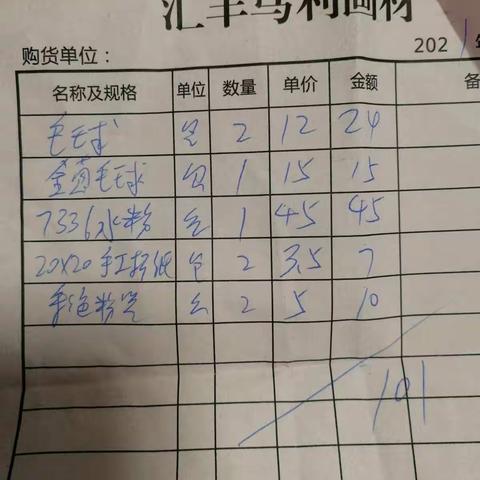 汇丰马利画材
购货单位：
2021年
名称及规格 单位 数量 单价 金额 备
毛毛球 包 2 12 24
毛球 包 1 15 15
7336水粉 盒 1 45 45
20X20手工折纸 包 2 3.5 7
彩色粉笔 盒 2 5 10
101